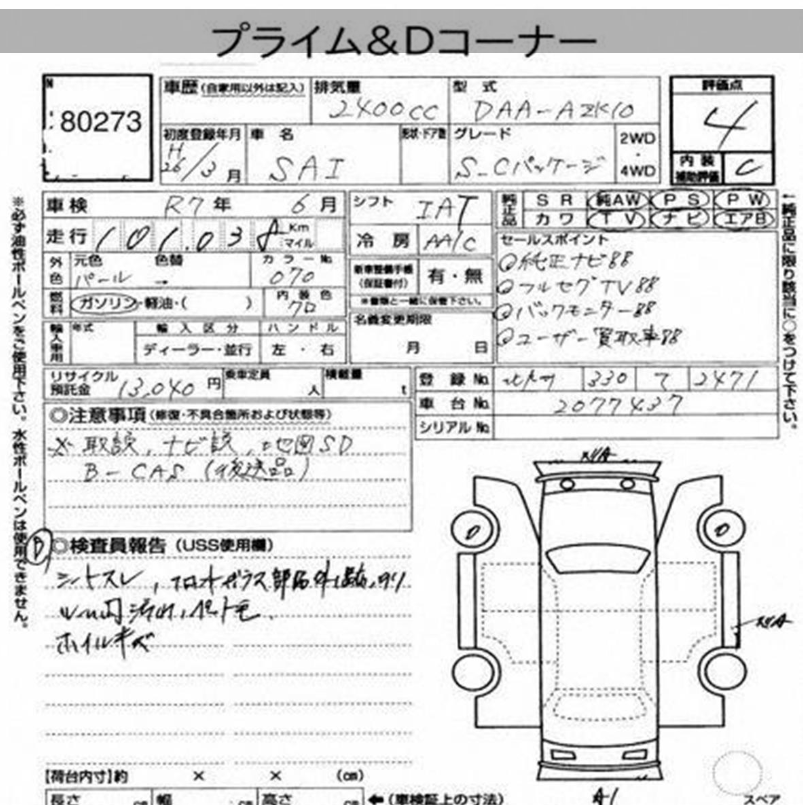 プライム&Dコーナー
80273
車歴(自家用以外は記入)
排気量
2400cc
型式
DAA-AZK10
評価点
4
初度登録年月
H26/3月
車名
SAI
形状・ドア数
グレード
S-Cパッケージ
2WD
・
4WD
内装
補助評価
C
車検 R7年 6月
シフト IAT
純正品
SR 純AW PS PW
カワ TV ナビ エアB
走行 101,038 Km
マイル
冷房 AA/C
セールスポイント
◎純正ナビ
◎フルセグTV
◎バックモニター
◎ユーザー買取車
外色
元色 色替
パール →
カラーNo.
070
新車整備手帳
(保証書付)
有・無
※書類と一緒に保管下さい。
燃料
ガソリン・軽油・( )
内装色
クロ
輸入車用
年式
輸入区分
ハンドル
ディーラー・並行
左・右
名義変更期限
月 日
リサイクル
預託金
13,040円
乗車定員
人
積載量
t
登録No. 330 2471
車台No. 2077437
シリアルNo.
◎注意事項(修復・不具合箇所および状態等)
※取説,ナビ説,地図SD
B-CAS(後送品)
◎検査員報告(USS使用欄)
シートスレ,フロントガラス
ルーム内汚れ,ペット毛
ホイルキズ
A1
スペア
【荷台内寸】約 × × (cm)
長さ cm 幅 cm 高さ cm ←(車検証上の寸法)
※必ず油性ボールペンをご使用下さい。水性ボールペンは使用できません。
←純正品に限り該当に○をつけて下さい。